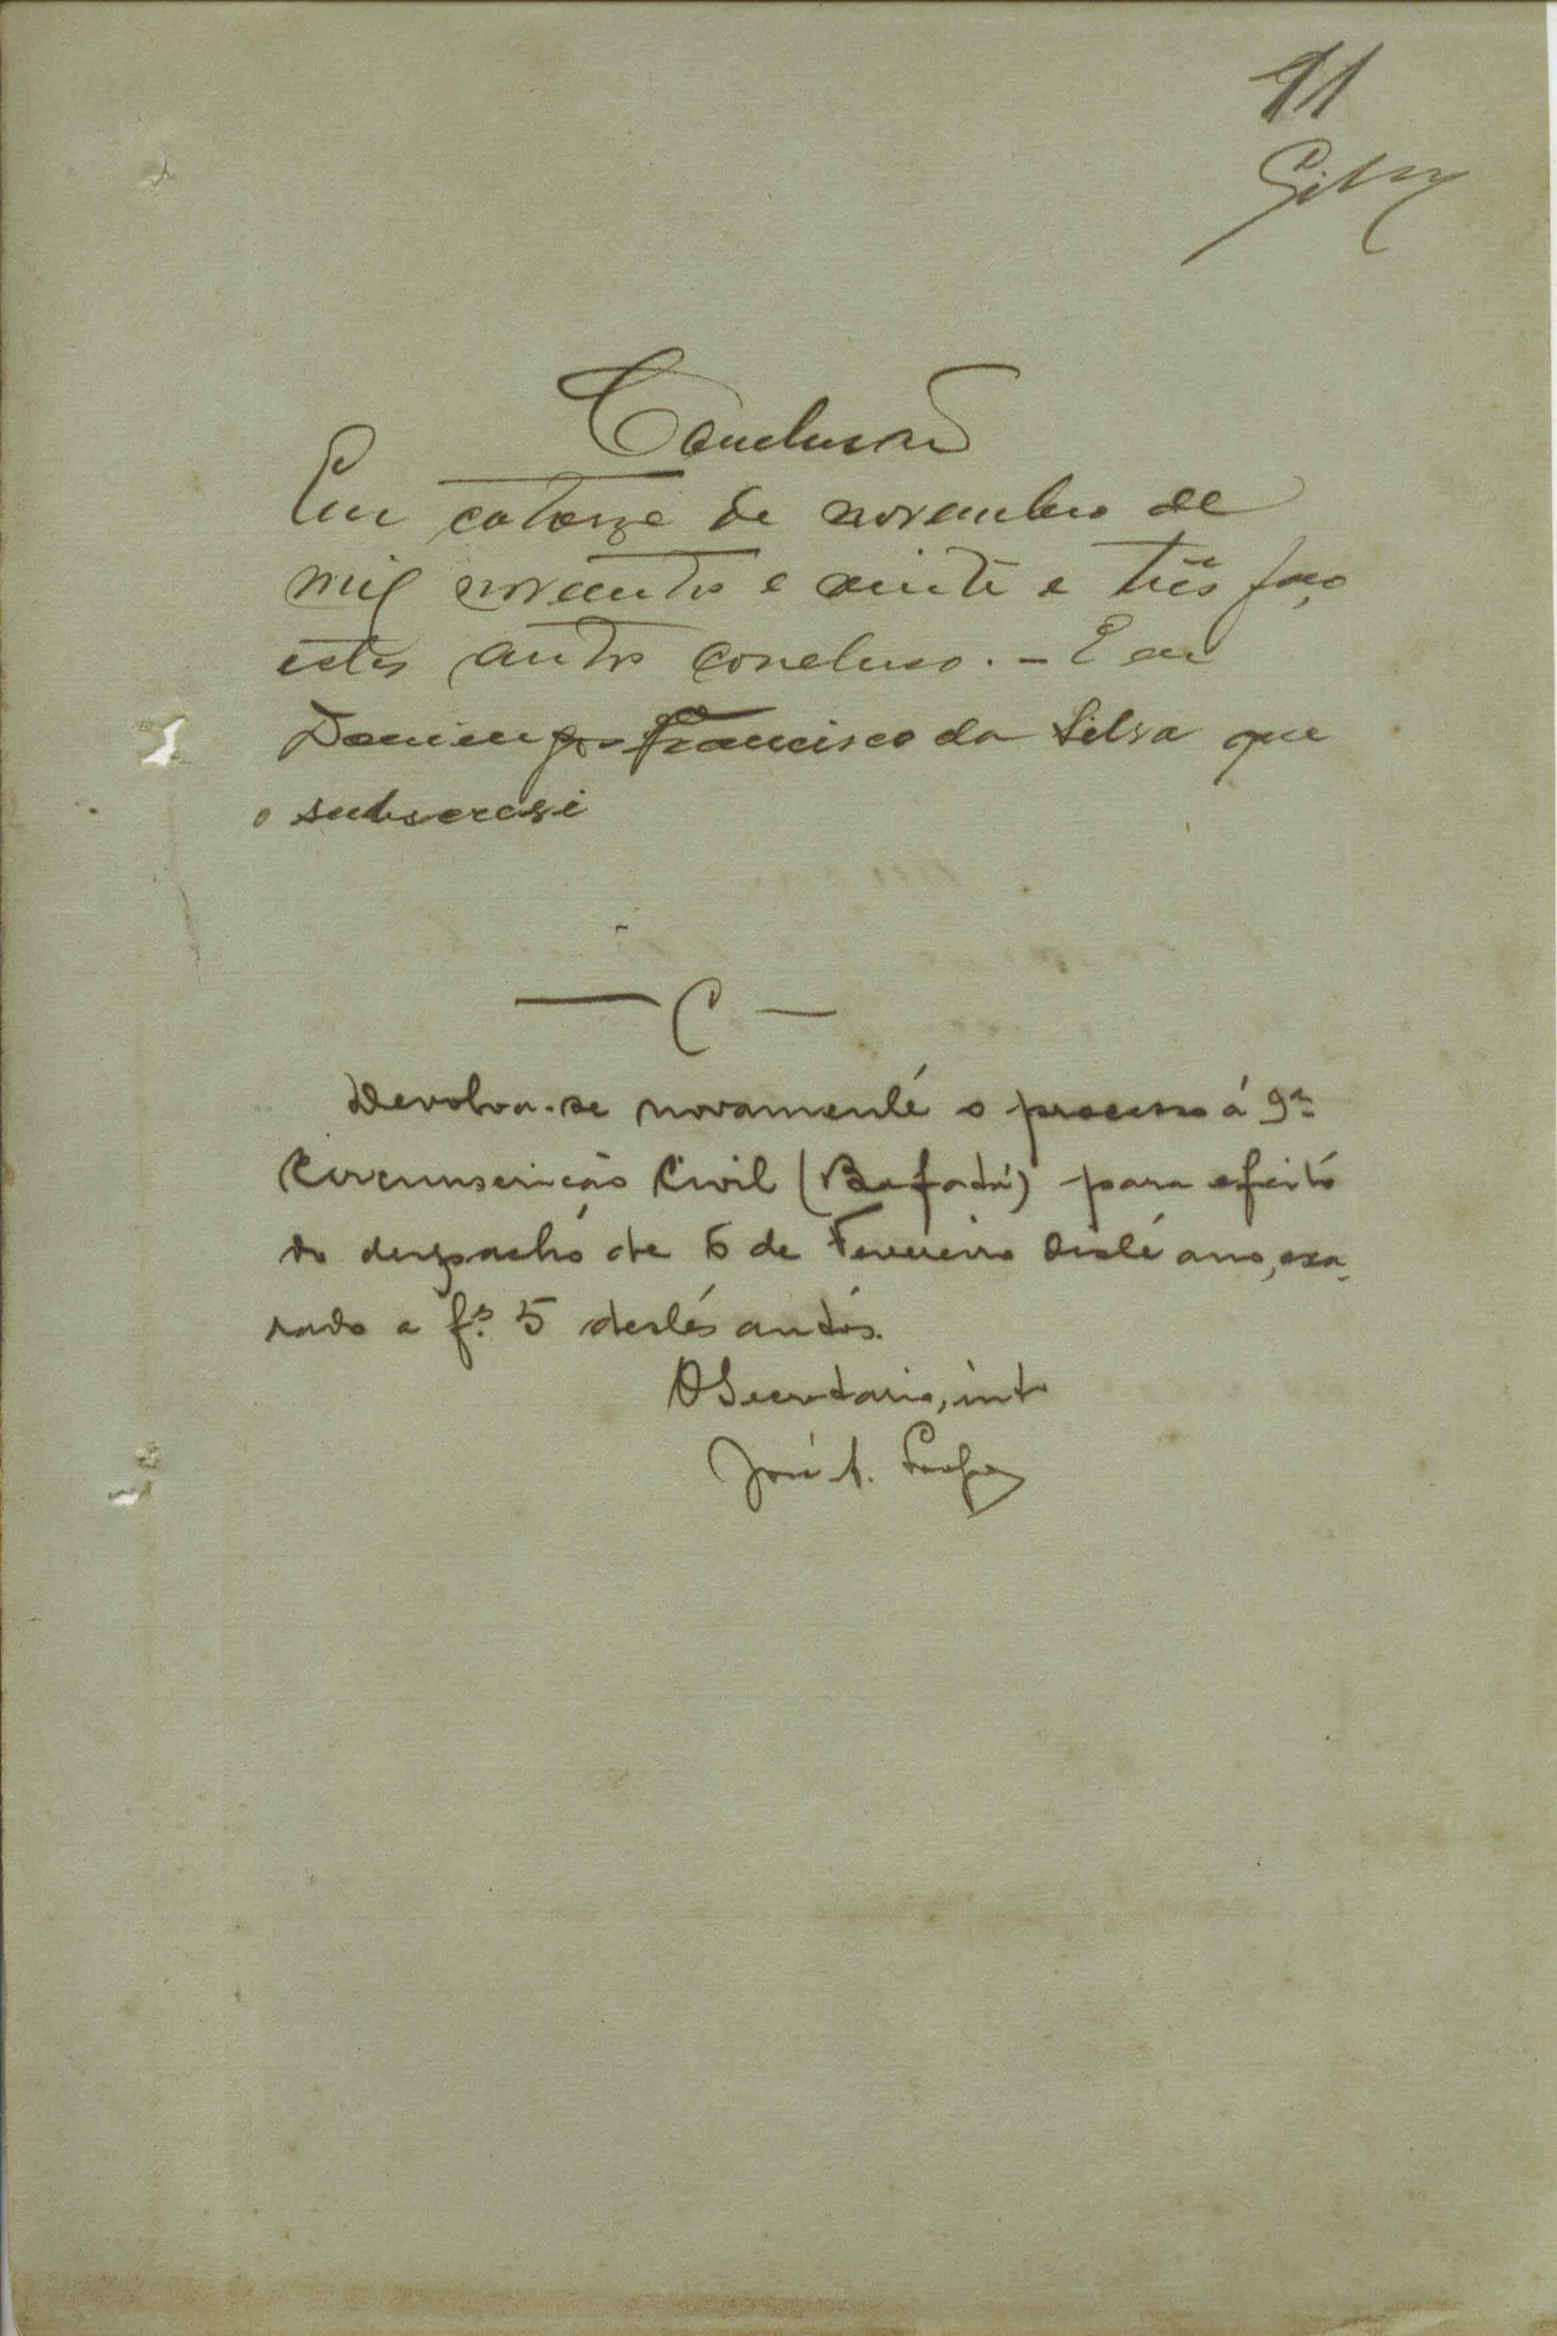 11
Silva
Conclusão
Em catorze de novembro de
mil novecentos e vinte e três faço
estes autos concluso. - E eu
Domingos Francisco da Silva que
o subscrevi
— C —
Devolva-se novamente o processo á 9ª
Circunscrição Civil (Bafatá) para efeito
do despacho de 6 de Fevereiro deste ano, exa-
rado a fs. 5 destes autos.
O Secretario, int
José A.